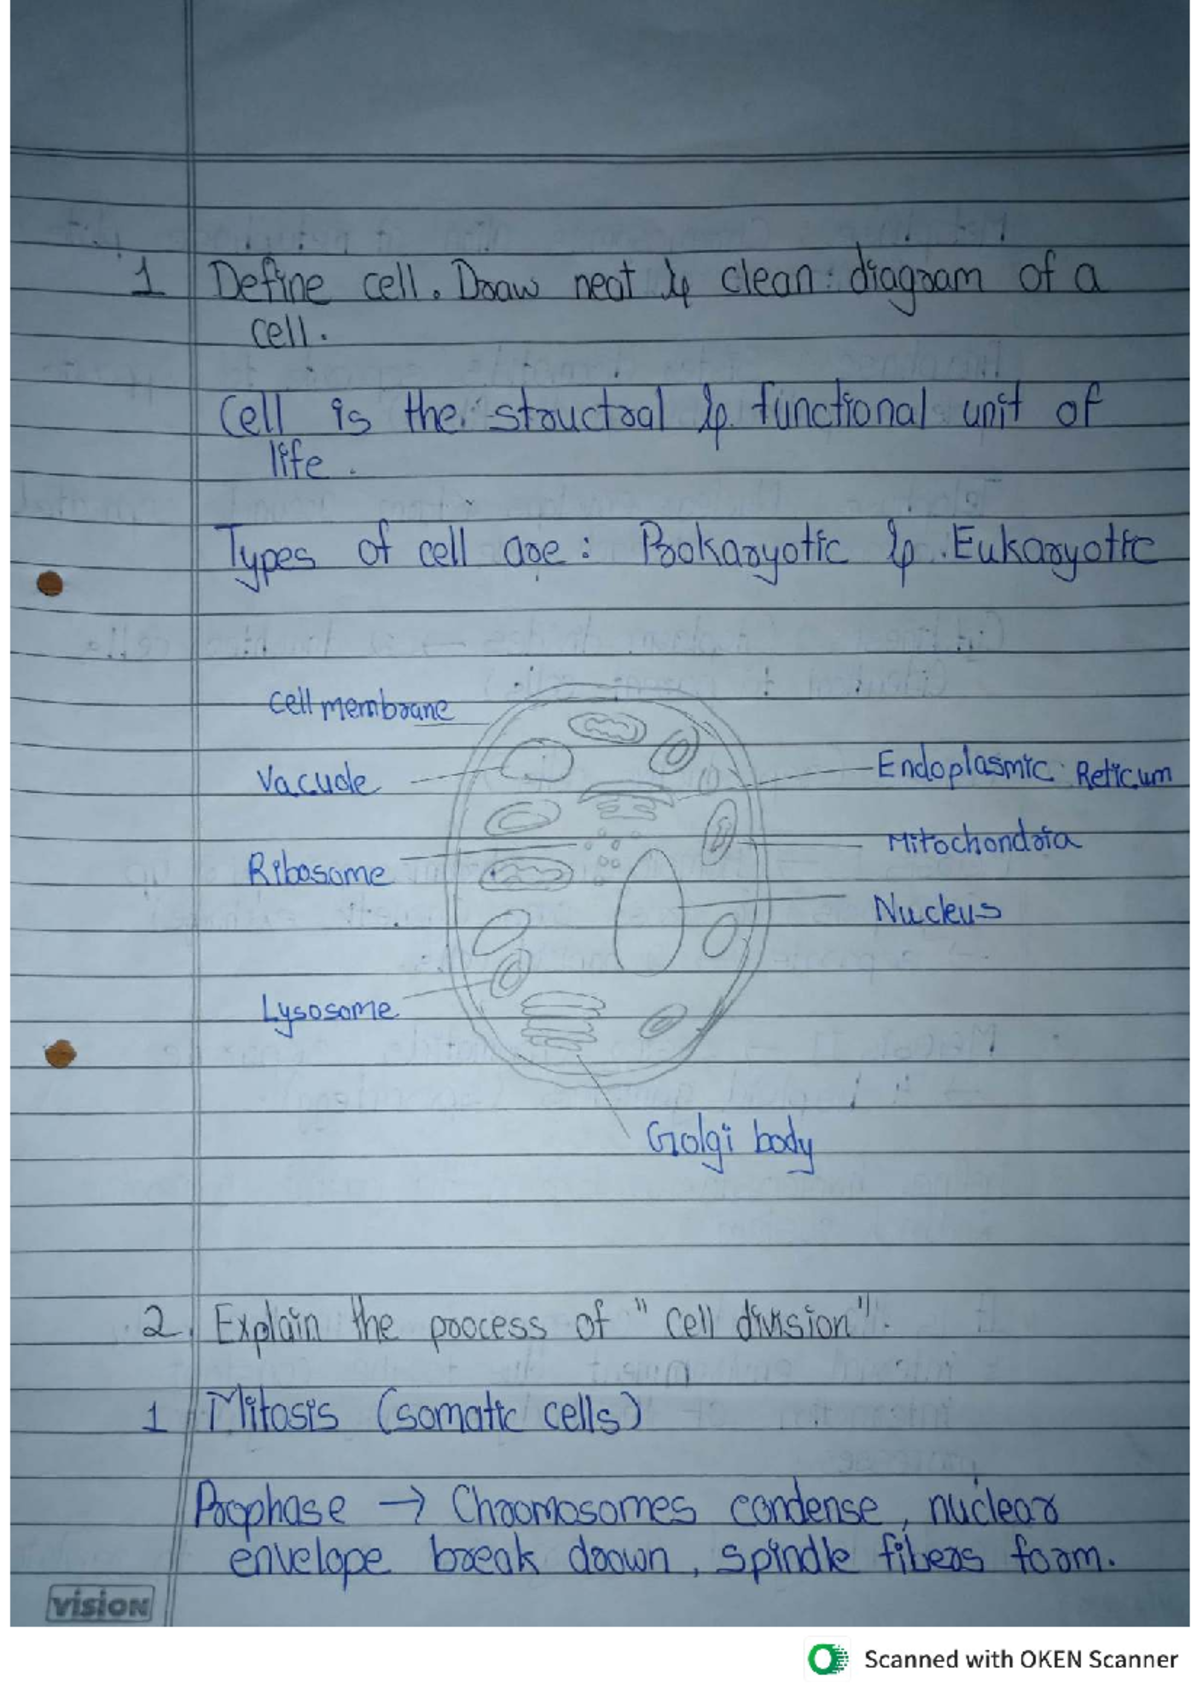 1 Define cell. Draw neat & clean diagram of a
cell.
Cell is the structral & functional unit of
life.
Types of cell are: Prokaryotic & Eukaryotic
Cell membrane
Vacuole
Endoplasmic Reticum
Mitochondria
Ribosome
Nucleus
Lysosome
Golgi body
2. Explain the process of "cell division".
1 Mitosis (somatic cells)
Prophase → Chromosomes condense, nuclear
envelope break down, spindle fibers form.
vision
Scanned with OKEN Scanner